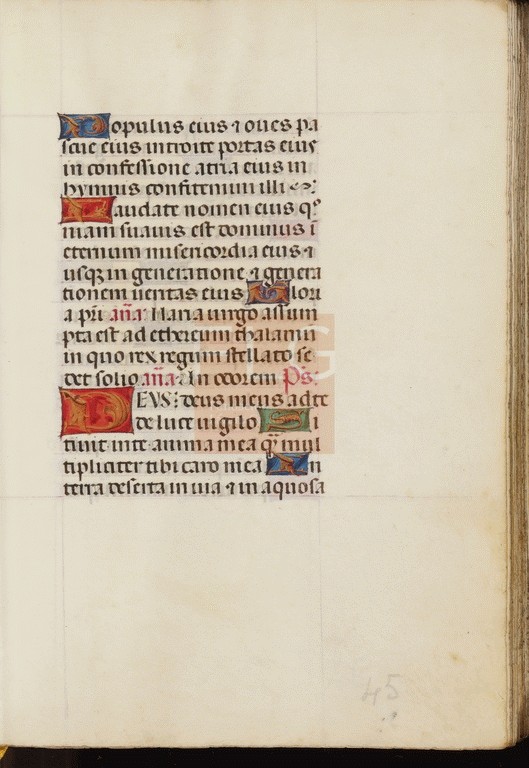 Populus eius ⁊ oues pa
scue eius introite portas eius
in confessione atria eius in
hymnis confitemini illi
Laudate nomen eius qͦ
niam suauis est dominus ī
eternum misericordia eius ⁊
usqꝫ in generatione ⁊ genera
tionem ueritas eius Glori
a pr̄i an̄a: Maria uirgo assum
pta est ad ethereum thalamū
in quo rex regum stellato se
det solio an̄a: In odorem Ps:
DEVS: deus meus ad te
de luce uigilo Si
tiuit in te anima mea qͣ mul
tipliciter tibi caro mea In
terra deserta in uia ⁊ in aquosa
45